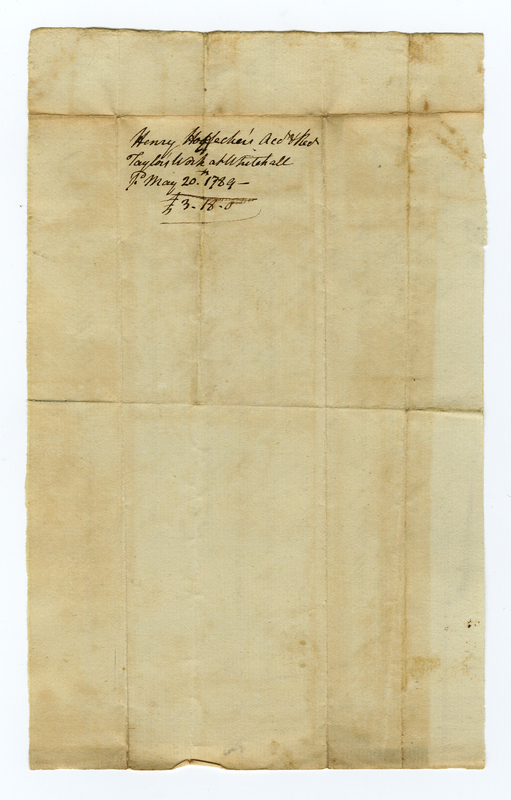 Henry Hoffacker's Acct & Rect
Taylors Work at Whitehall
Pd May 20th 1789 –
£ 3 - 18 - 0